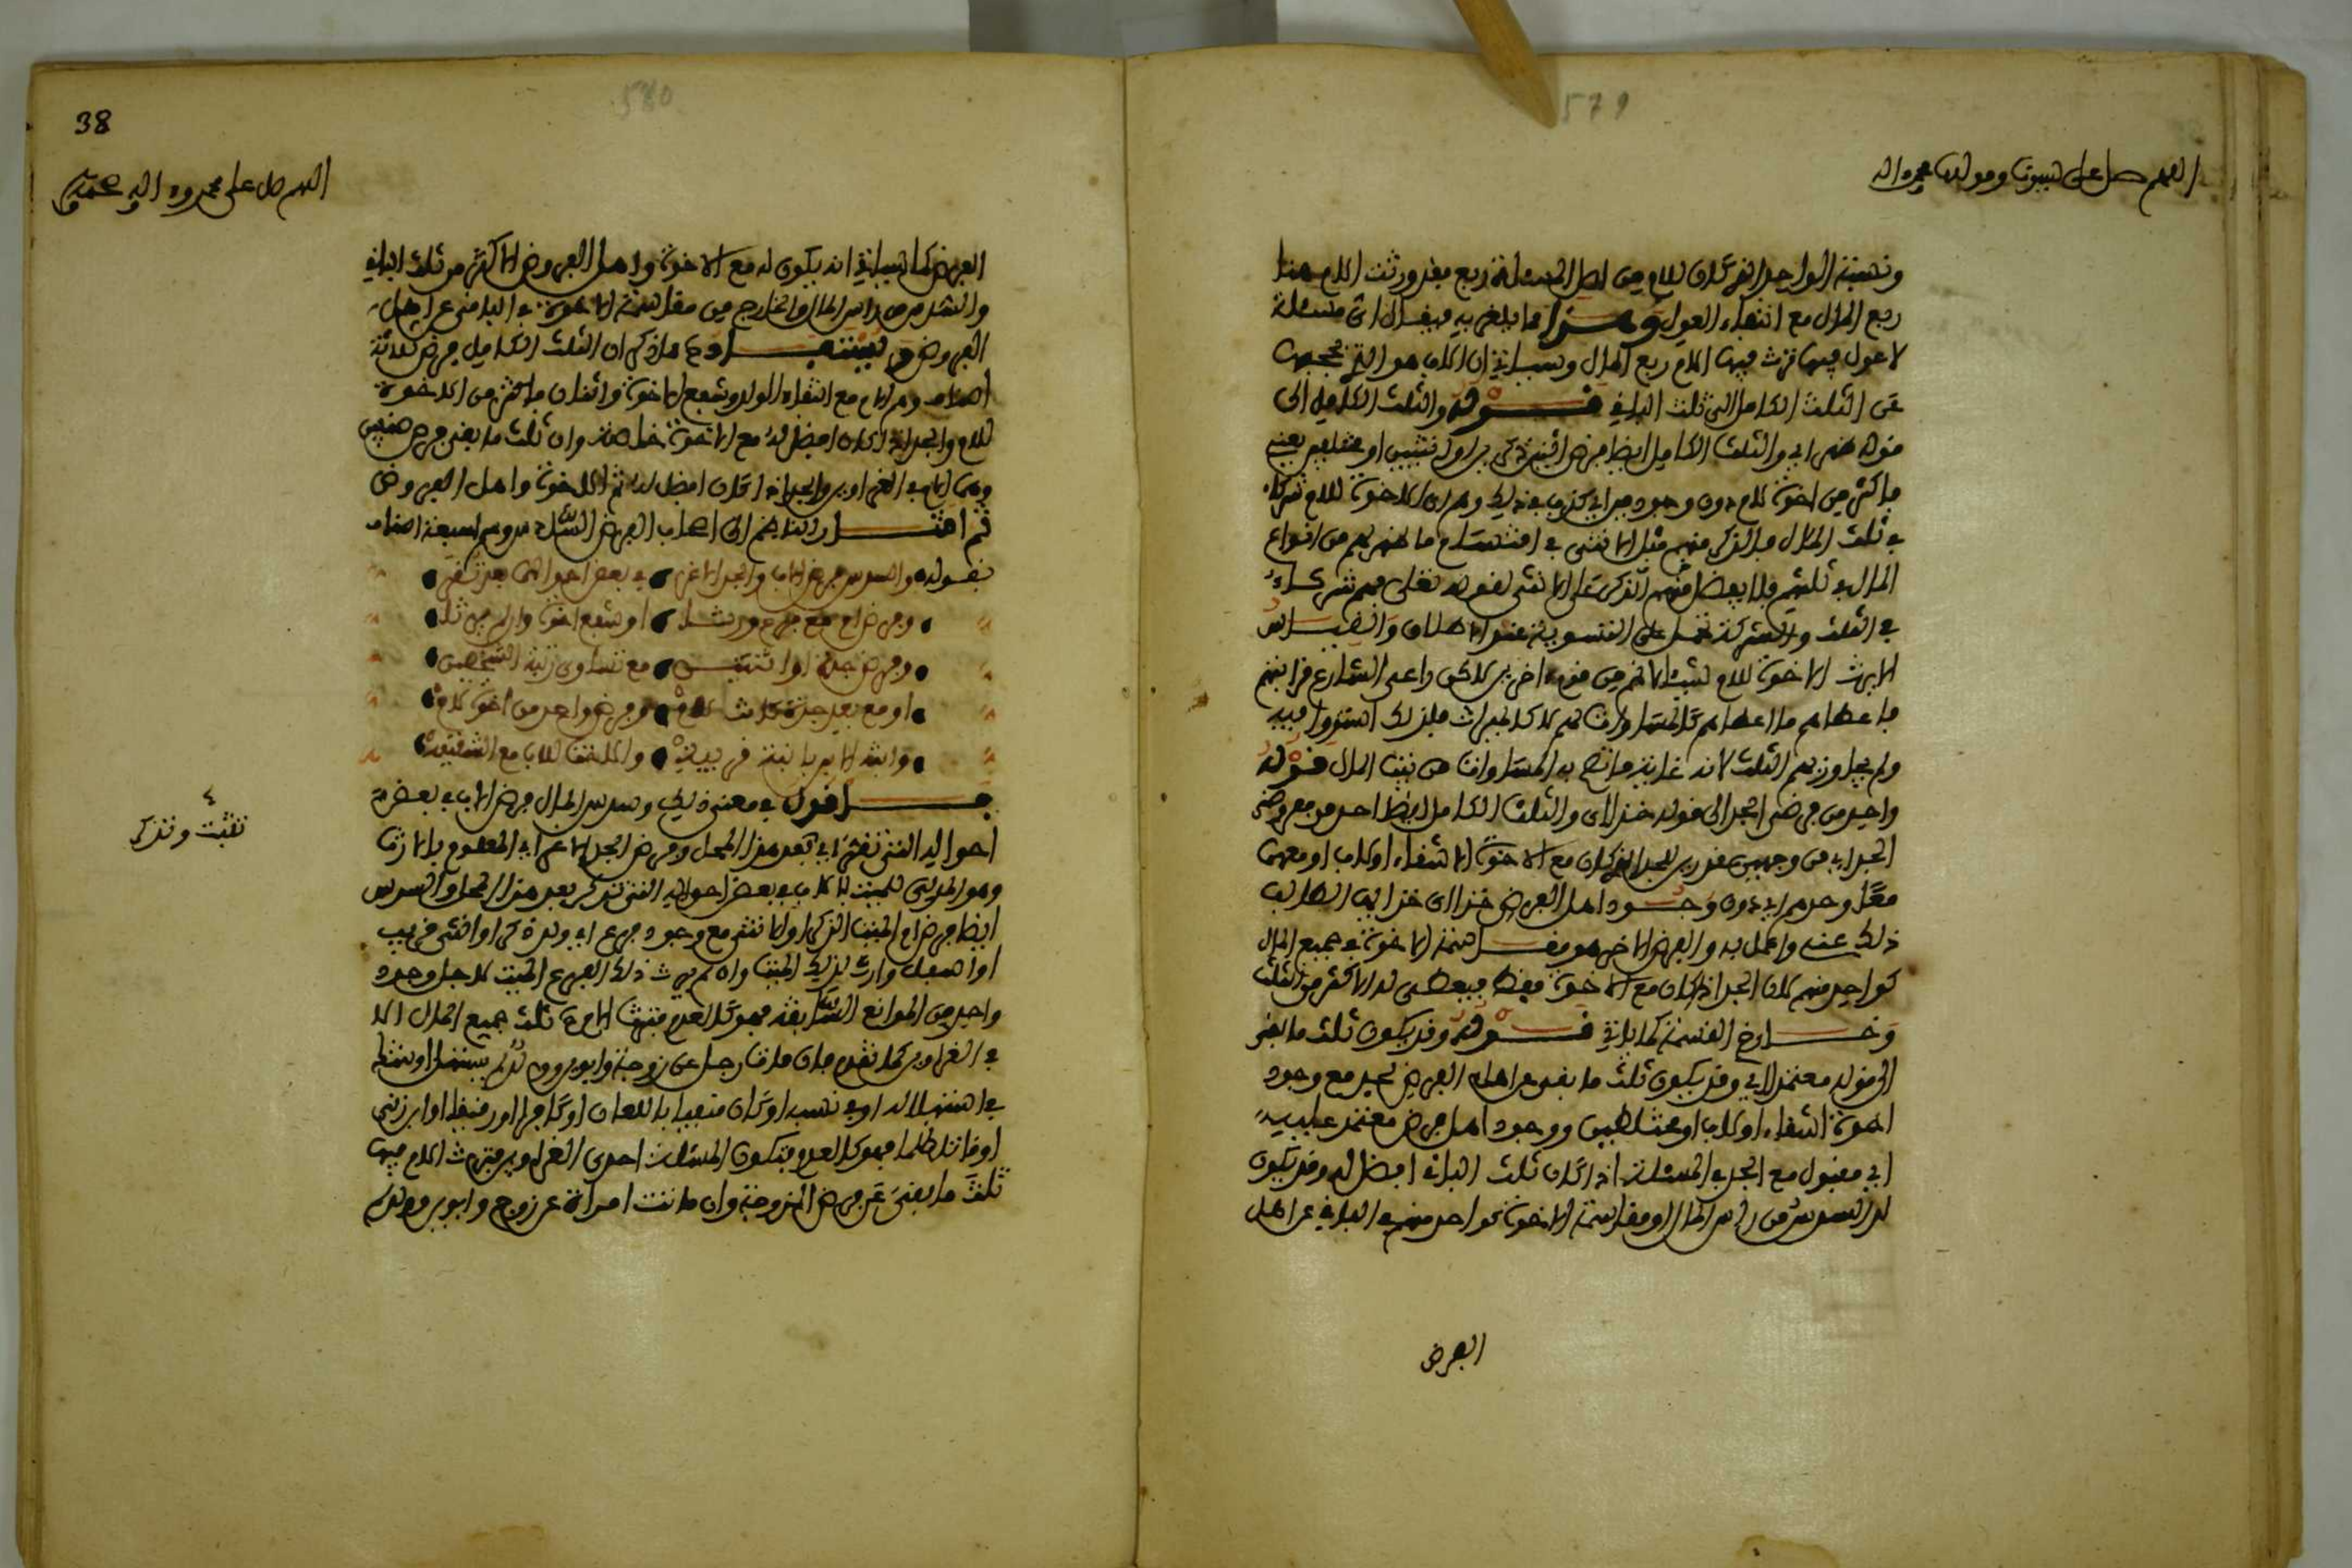 579
اللهم صل على نبينا ومولانا محمد واله
ونسبة الواحد الذي كان للام من اصل المسئلة ربع فقد ورثت الام هنا
ربع المال مع انتفاء العول وهذا مما يلغز به فيقال اي مسئلة
لا عول فيها ترث فيها الام ربع المال وسياتي ان الاب هو الذي يحجبها
عن الثلث الكامل الى ثلث الباقي قوله والثلث الكامل الى
قوله ضهر اي والثلث الكامل ايضا فرض اثنين ذكرين او انثيين او مختلفين يعني
فاكثر من اخوة للام دون وجود من اي كذب في ذلك وهم اي الاخوة للام شركاء
في ثلث المال فالذكر منهم مثل الانثى في اقتسام ما ظهر لهم من انواع
المال في ثلثهم فلا يفضل منهم الذكر على الانثى لقوله تعالى فهم شركاء
في الثلث والشركة تحمل على التسوية عند الاطلاق والقياس
الا يرث الاخوة للام شيئا لانهم من قوم اخرين لاكن راعى الشارع قرابتهم
فاعطاهم ما اعطاهم كالمساواة لهم لا كالميراث فلذلك استووا فيه
ولم يجاوز بهم الثلث لانه غاية ما تصح به المساواة من بيت المال قوله
واحد من فرضي الجد الى قوله خذ لاي والثلث الكامل ايضا احد من مفروضي
الجد اي من وجهين مقدرين للجد اذا كان مع الاخوة الاشقاء او لاب او معهما
معا وحدهم اي دون وجود اهل الفرض خذ الي خذ ايها الطالب
ذلك عنه واعمل به والفرض الاخر هو مقاسمة الاخوة في جميع المال
كواحد منهم لان الجد اذا كان مع الاخوة فقط فيعطى له الاكثر من الثلث
وخارج القسمة كما ياتي قوله وقد يكون ثلث ما بقي
الى قوله معتمد لاي وقد يكون ثلث ما بقي عن اهل الفرض لجد مع وجود
اخوة اشقاء او لاب او مختلطين ووجود اهل فرض معتمد عليه
اي مقبول مع الجد في المسئلة اذا كان ثلث الباقي افضل له وقد يكون
له السدس من راس المال او مقاسمة الاخوة كواحد منهم في الباقي عن اهل
الفرض
580
38
اللهم صل على محمد واله وصحبه
الفرض كما سياتي انه يكون له مع الاخوة واهل الفروض الاكثر من ثلث الباقي
والسدس من راس المال والخارج من مقاسمة الاخوة في الباقي عن اهل
الفروض فيستفاد مما ذكر ان الثلث الكامل فرض ثلاثة
اصناف وهم الام مع انتفاء الولد وشفع الاخوة واثنان فاكثر من الاخوة
للام والجد اذا كان افضل له مع الاخوة خاصة وان ثلث ما بقي فرض صنفين
وهما الام في الغراوين والجد اذا كان افضل له ثم الاخوة واهل الفروض
ثم اشار الناظم الى اصحاب الفرض السادس وهم سبعة اصناف
بقوله والسدس فرض الاب والجد الاغر في بعض احوالهما بعد تقر
وفرض ام مع فرع ورثا او شفع اخوة وان لم يرثا
وفرض جدة او اثنتين مع تساوي رتبة الشخصين
او مع بعد جدة كانت للام وفرض واحد من اخوة للام
وابنة الابن بابنة في بيتي والاخت للاب مع الشقيقة
فاقول في معنى ذلك وسدس المال فرض الاب في بعض
احواله التي تقر اي بعد هذا المحل وفرض الجد الاغر اي المعلوم بالارث
وهو المدلي للميت بالاب في بعض احواله التي تذكر بعد هذا المحل والسدس
ايضا فرض ام الميت الذكر او الانثى مع وجود فرع اي ولد ذكر او انثى قريب
او اسفل وارث لذلك الميت وان لم يرث ذلك الفرع الميت لاجل وجود
واحد من الموانع السابقة فهو كالعدم فترث الام ثلث جميع المال الا
في الغراوين كما تقدم فان مات رجل عن زوجة وابوين وولد لم يستهل او شك
في استهلاله او في نسبه او كان منفيا باللعان او كافرا او رقيقا او ابن زنى
او قاتلا ظلما فهو كالعدم فتكون المسئلة احدى الغراوين فترث الام فيها
ثلث ما بقي عن فرض الزوجة وان ماتت امراة عن زوج وابوين وولد
تثبت وتذكر